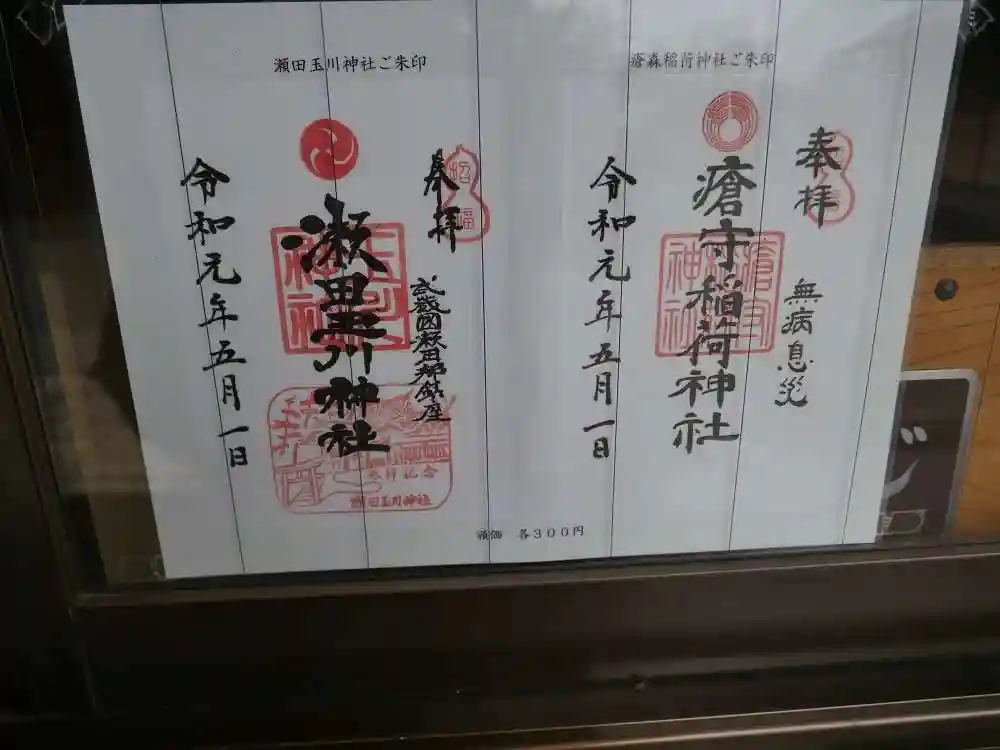 瘡森稲荷神社ご朱印
奉拝
無病息災
瘡守稲荷神社
令和元年五月一日
瀬田玉川神社ご朱印
奉拝
招福
武蔵國瀬田郷鎮座
瀬田玉川神社
参拝記念
瀬田玉川神社
令和元年五月一日
頒価　各300円